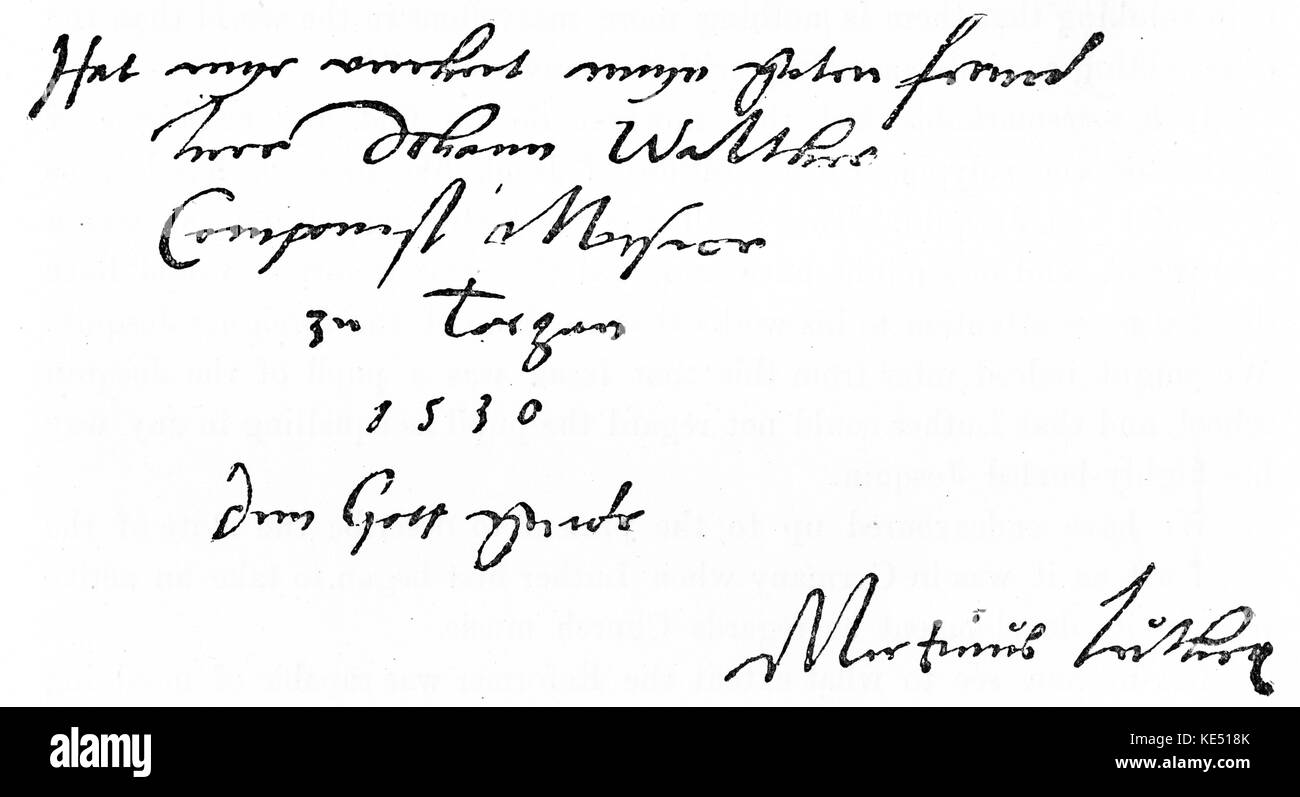 Hat myr verehrt meyn guter freund
herr Johann Walther
Componist Musice
zu Torgau
1530
dem Gott gnade
Martinus Luther
alamy
Image ID: KE518K
www.alamy.com